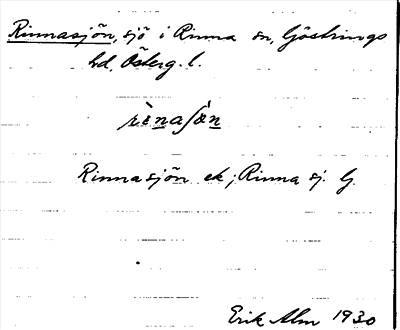 Rinnasjön, sjö i Rinna sn, Göstrings
hd, Österg. l.
rìnaʃön
Rinnasjön ek; Rinna sj. G.
Erik Alm 1930